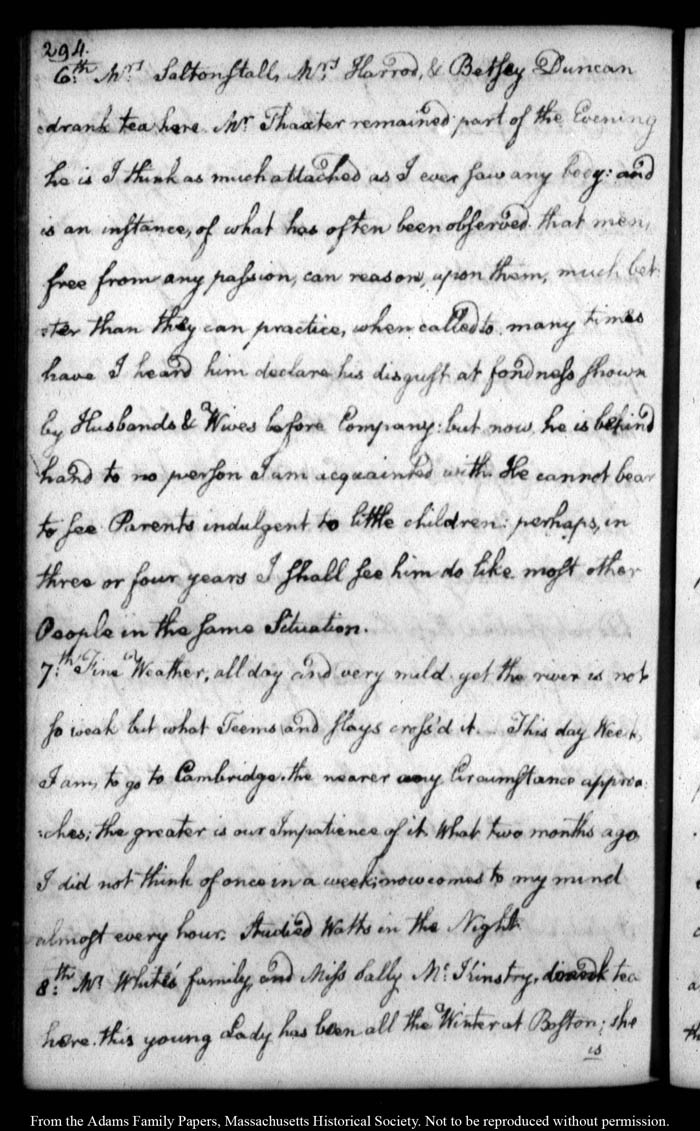 294.
6.th Mrs Saltonstall, Mrs Harrod, & Betsey Duncan
drank tea here. Mr Thaxter remained part of the Evening
he is I think as much attached as I ever saw any body: and
is an instance, of what has often been observed that men,
free from any passion, can reason, upon them, much bet-
:ter than they can practice, when called to. many times
have I heard him declare his disgust at fondness shown
by Husbands & Wives before Company: but now he is behind
hand to no person I am acquainted with. He cannot bear
to see Parents indulgent to little children: perhaps, in
three or four years I shall see him do like most other
People in the same Situation.
7.th Fine Weather, all day and very mild. yet the river is not
so weak but what Teems and slays cross'd it. This day Week,
I am, to go to Cambridge. the nearer any Circumstance approa
:ches; the greater is our Impatience of it. What two months ago
I did not think of once in a week; now comes to my mind
almost every hour. Studied Watts in the Night.
8.th Mr White's family, and Miss Sally McKinstry, drank tea
here. this young Lady has been all the Winter at Boston; she
is
From the Adams Family Papers, Massachusetts Historical Society. Not to be reproduced without permission.